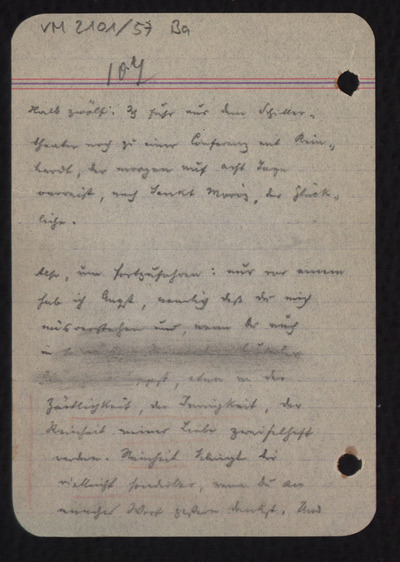 VM 2101/57 Ba
107
Halb zwölf. Ich fuhr aus dem Schiller-
theater noch zu einer Conferenz mit Rein-
hardt, der morgen auf acht Tage
verreist, nach Sankt Moriz, der Glück-
liche.
Also, um fortzufahren: nur vor einem
hab ich Angst, nemlich daß du mich
missverstehen und, wenn du auch
in
, etwa an der
Zärtlichkeit, der Innigkeit, der
Reinheit meiner Liebe zweifelhaft
werden. Reinheit klingt dir
vielleicht sonderbar, wenn du an
manches Wort gestern denkst. Und